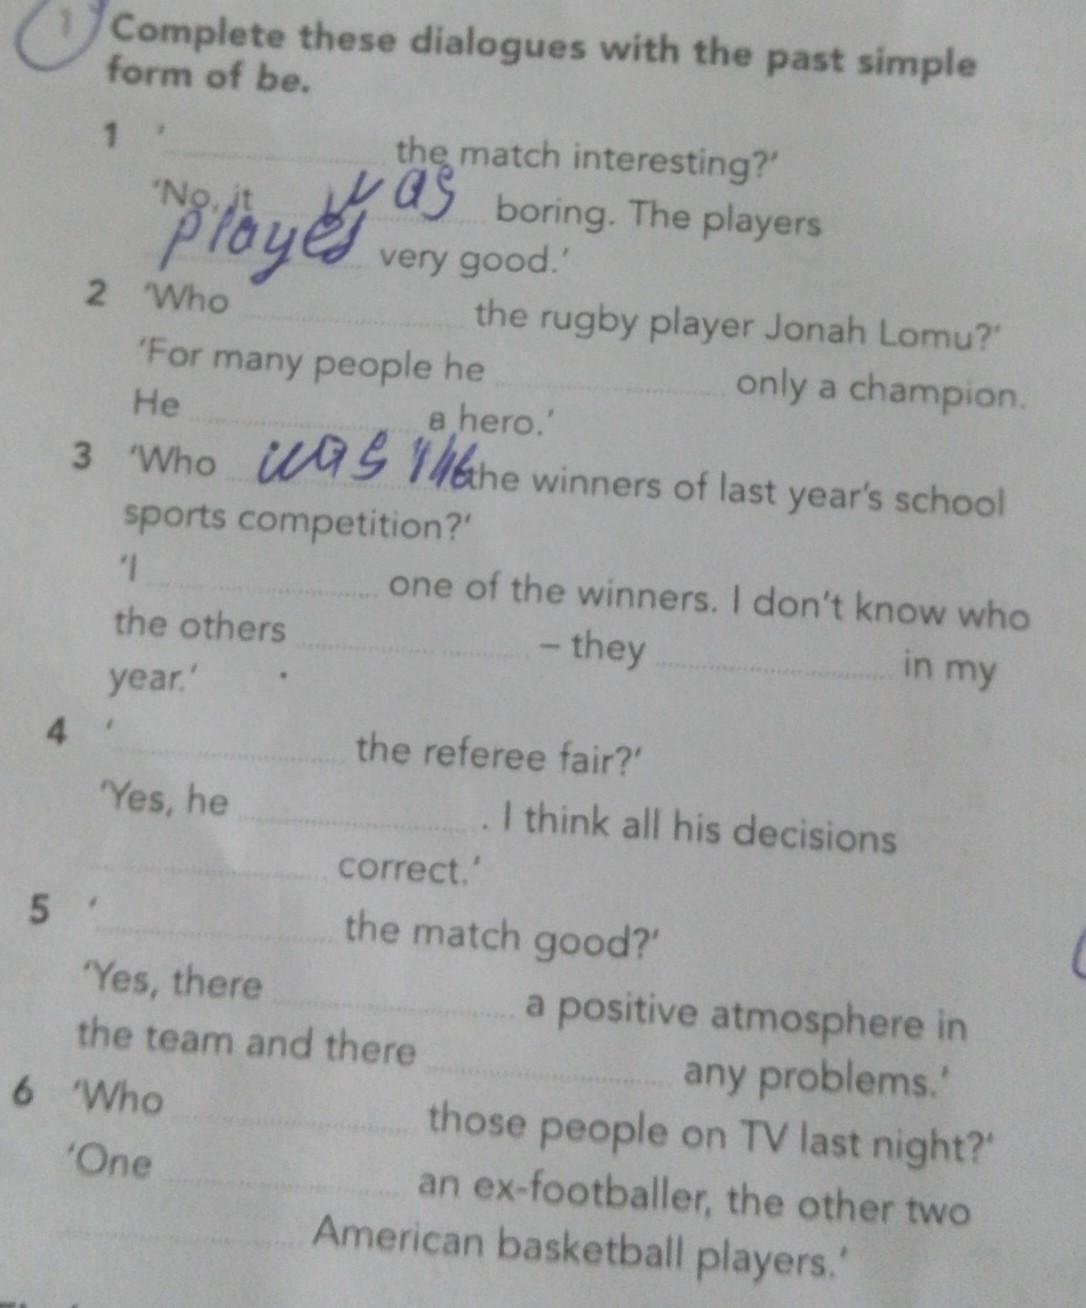 1 Complete these dialogues with the past simple
form of be.
1 ' the match interesting?'
'No, it was boring. The players
very good.'
2 'Who the rugby player Jonah Lomu?'
'For many people he only a champion.
He a hero.'
3 'Who was the winners of last year's school
sports competition?'
'I one of the winners. I don't know who
the others – they in my
year.'
4 ' the referee fair?'
'Yes, he . I think all his decisions
correct.'
5 ' the match good?'
'Yes, there a positive atmosphere in
the team and there any problems.'
6 'Who those people on TV last night?'
'One an ex-footballer, the other two
American basketball players.'